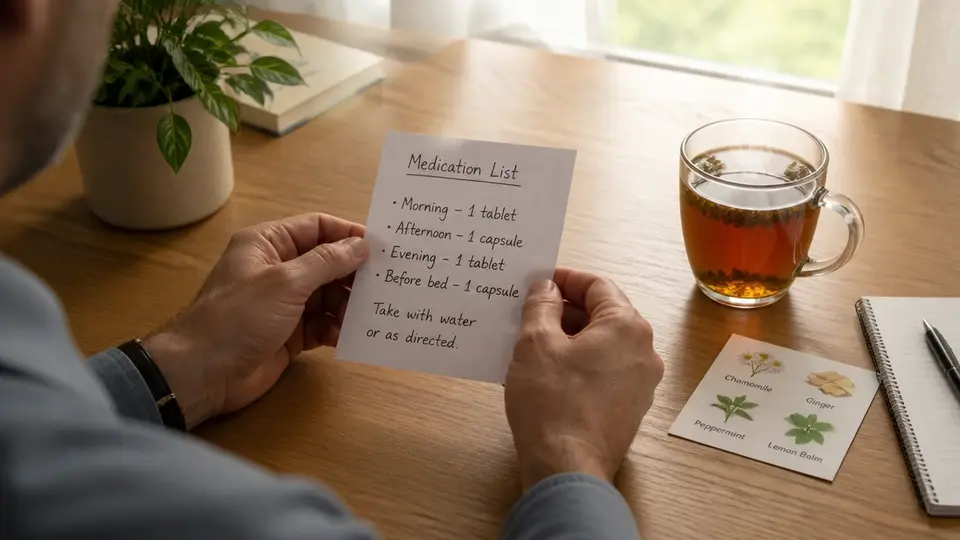 Medication List
• Morning – 1 tablet
• Afternoon – 1 capsule
• Evening – 1 tablet
• Before bed – 1 capsule
Take with water
or as directed.
Chamomile
Ginger
Peppermint
Lemon Balm